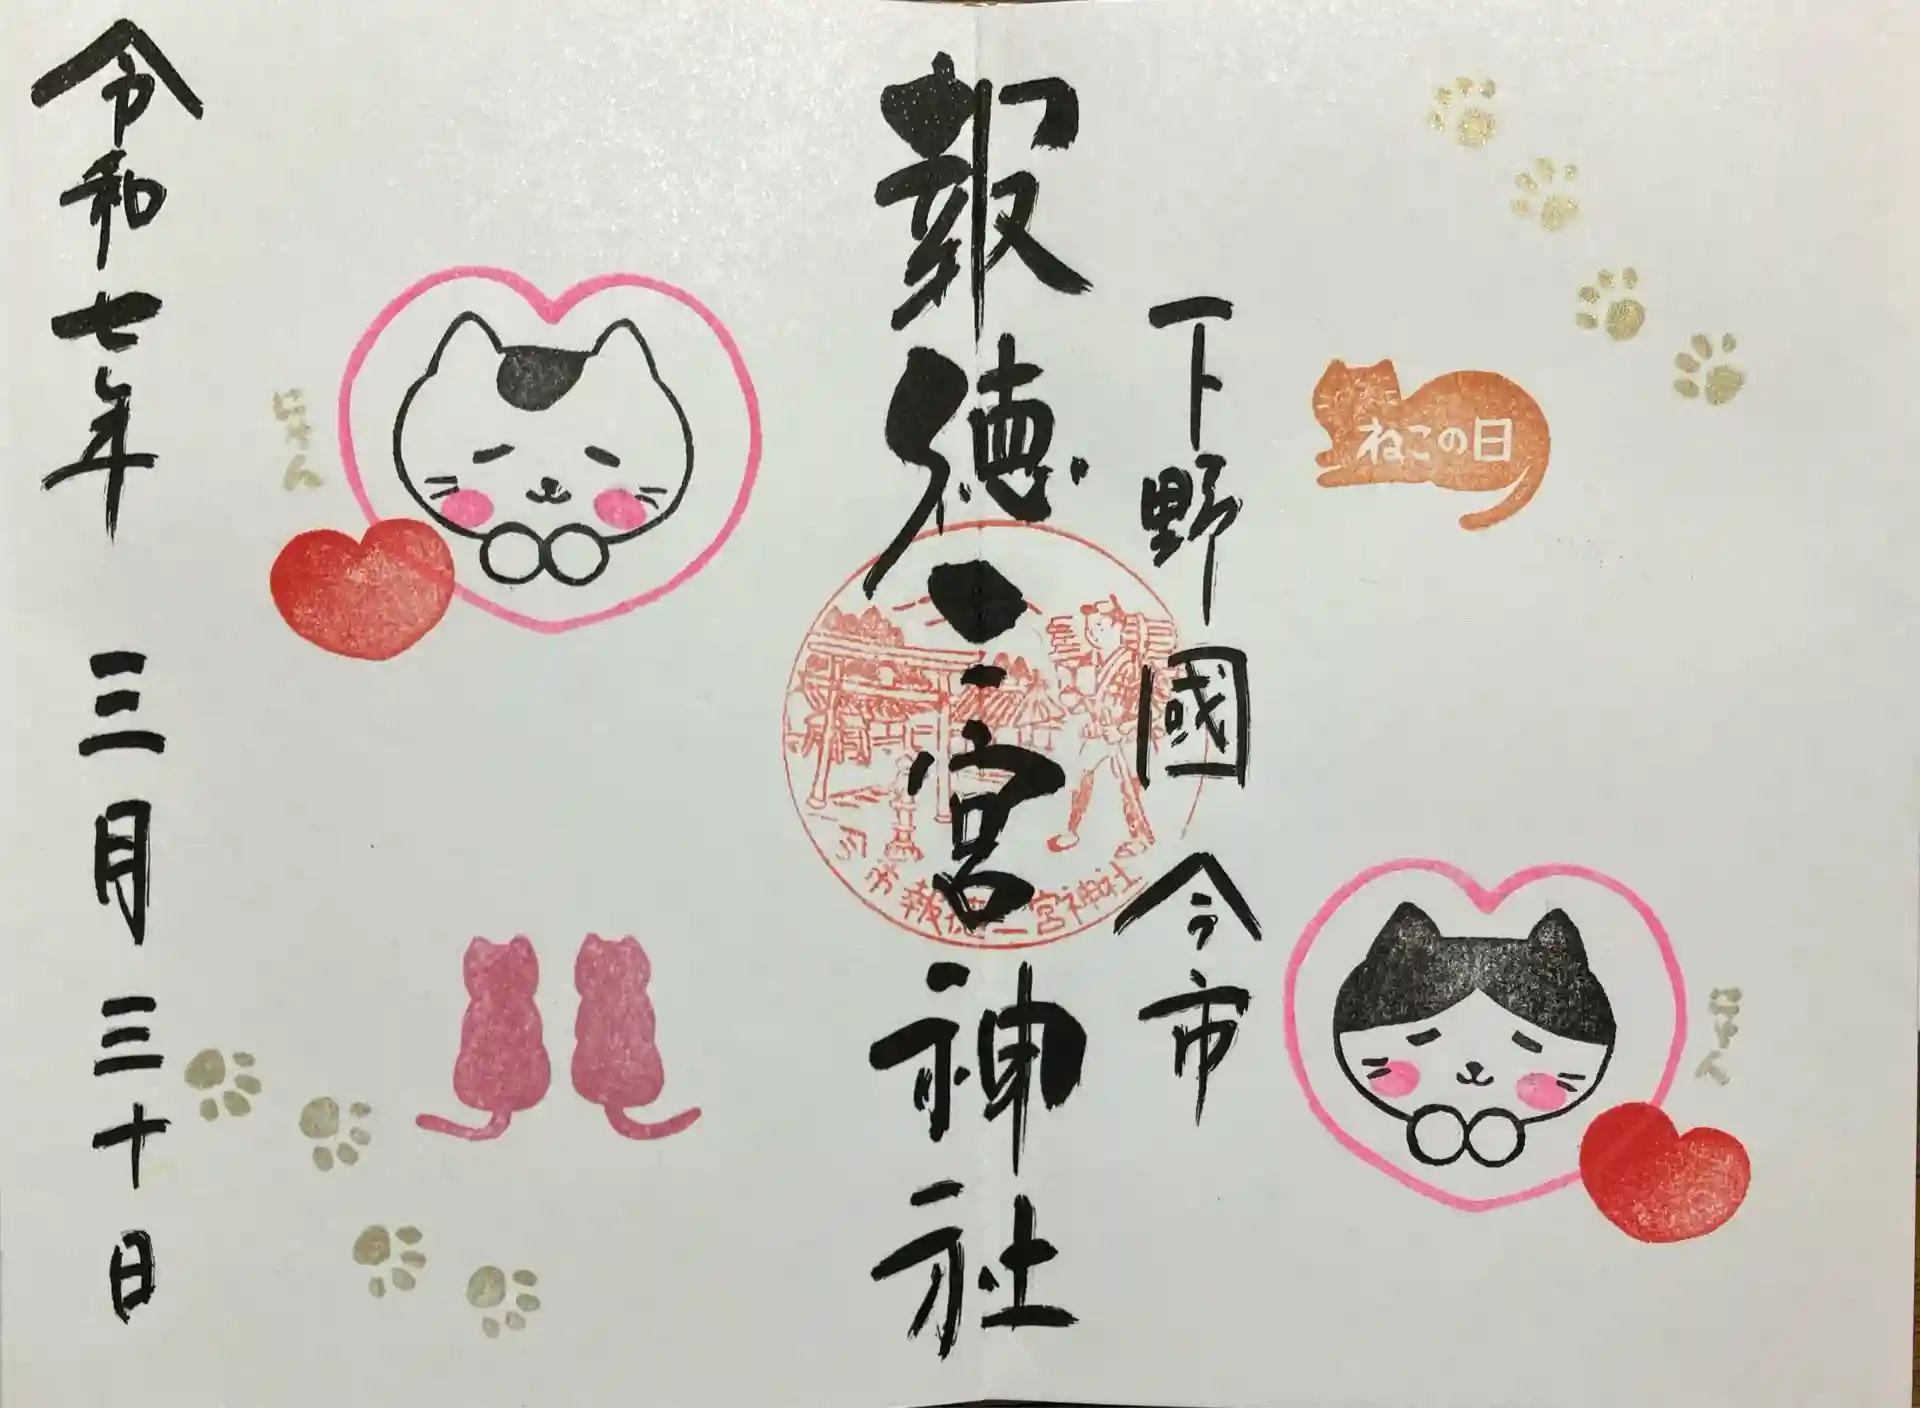 下野國 今市
報徳二宮神社
令和七年 三月 三十日
ねこの日
にゃん
にゃん
市報徳二宮神社